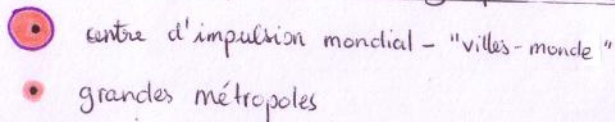 centre d'impulsion mondial - "villes-monde"
grandes métropoles